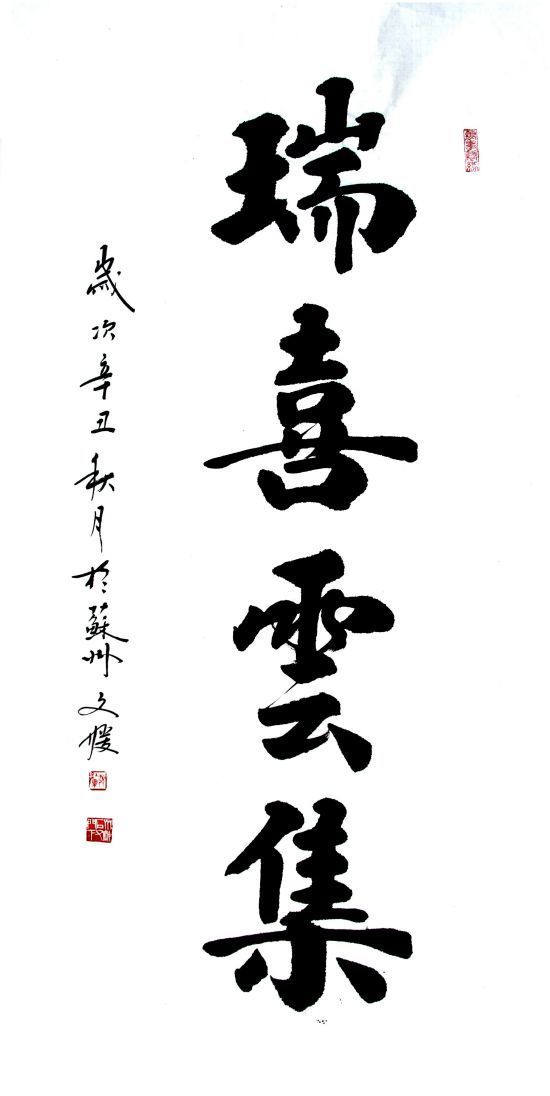 瑞喜雲集
歲次辛丑秋月於蘇州文媛